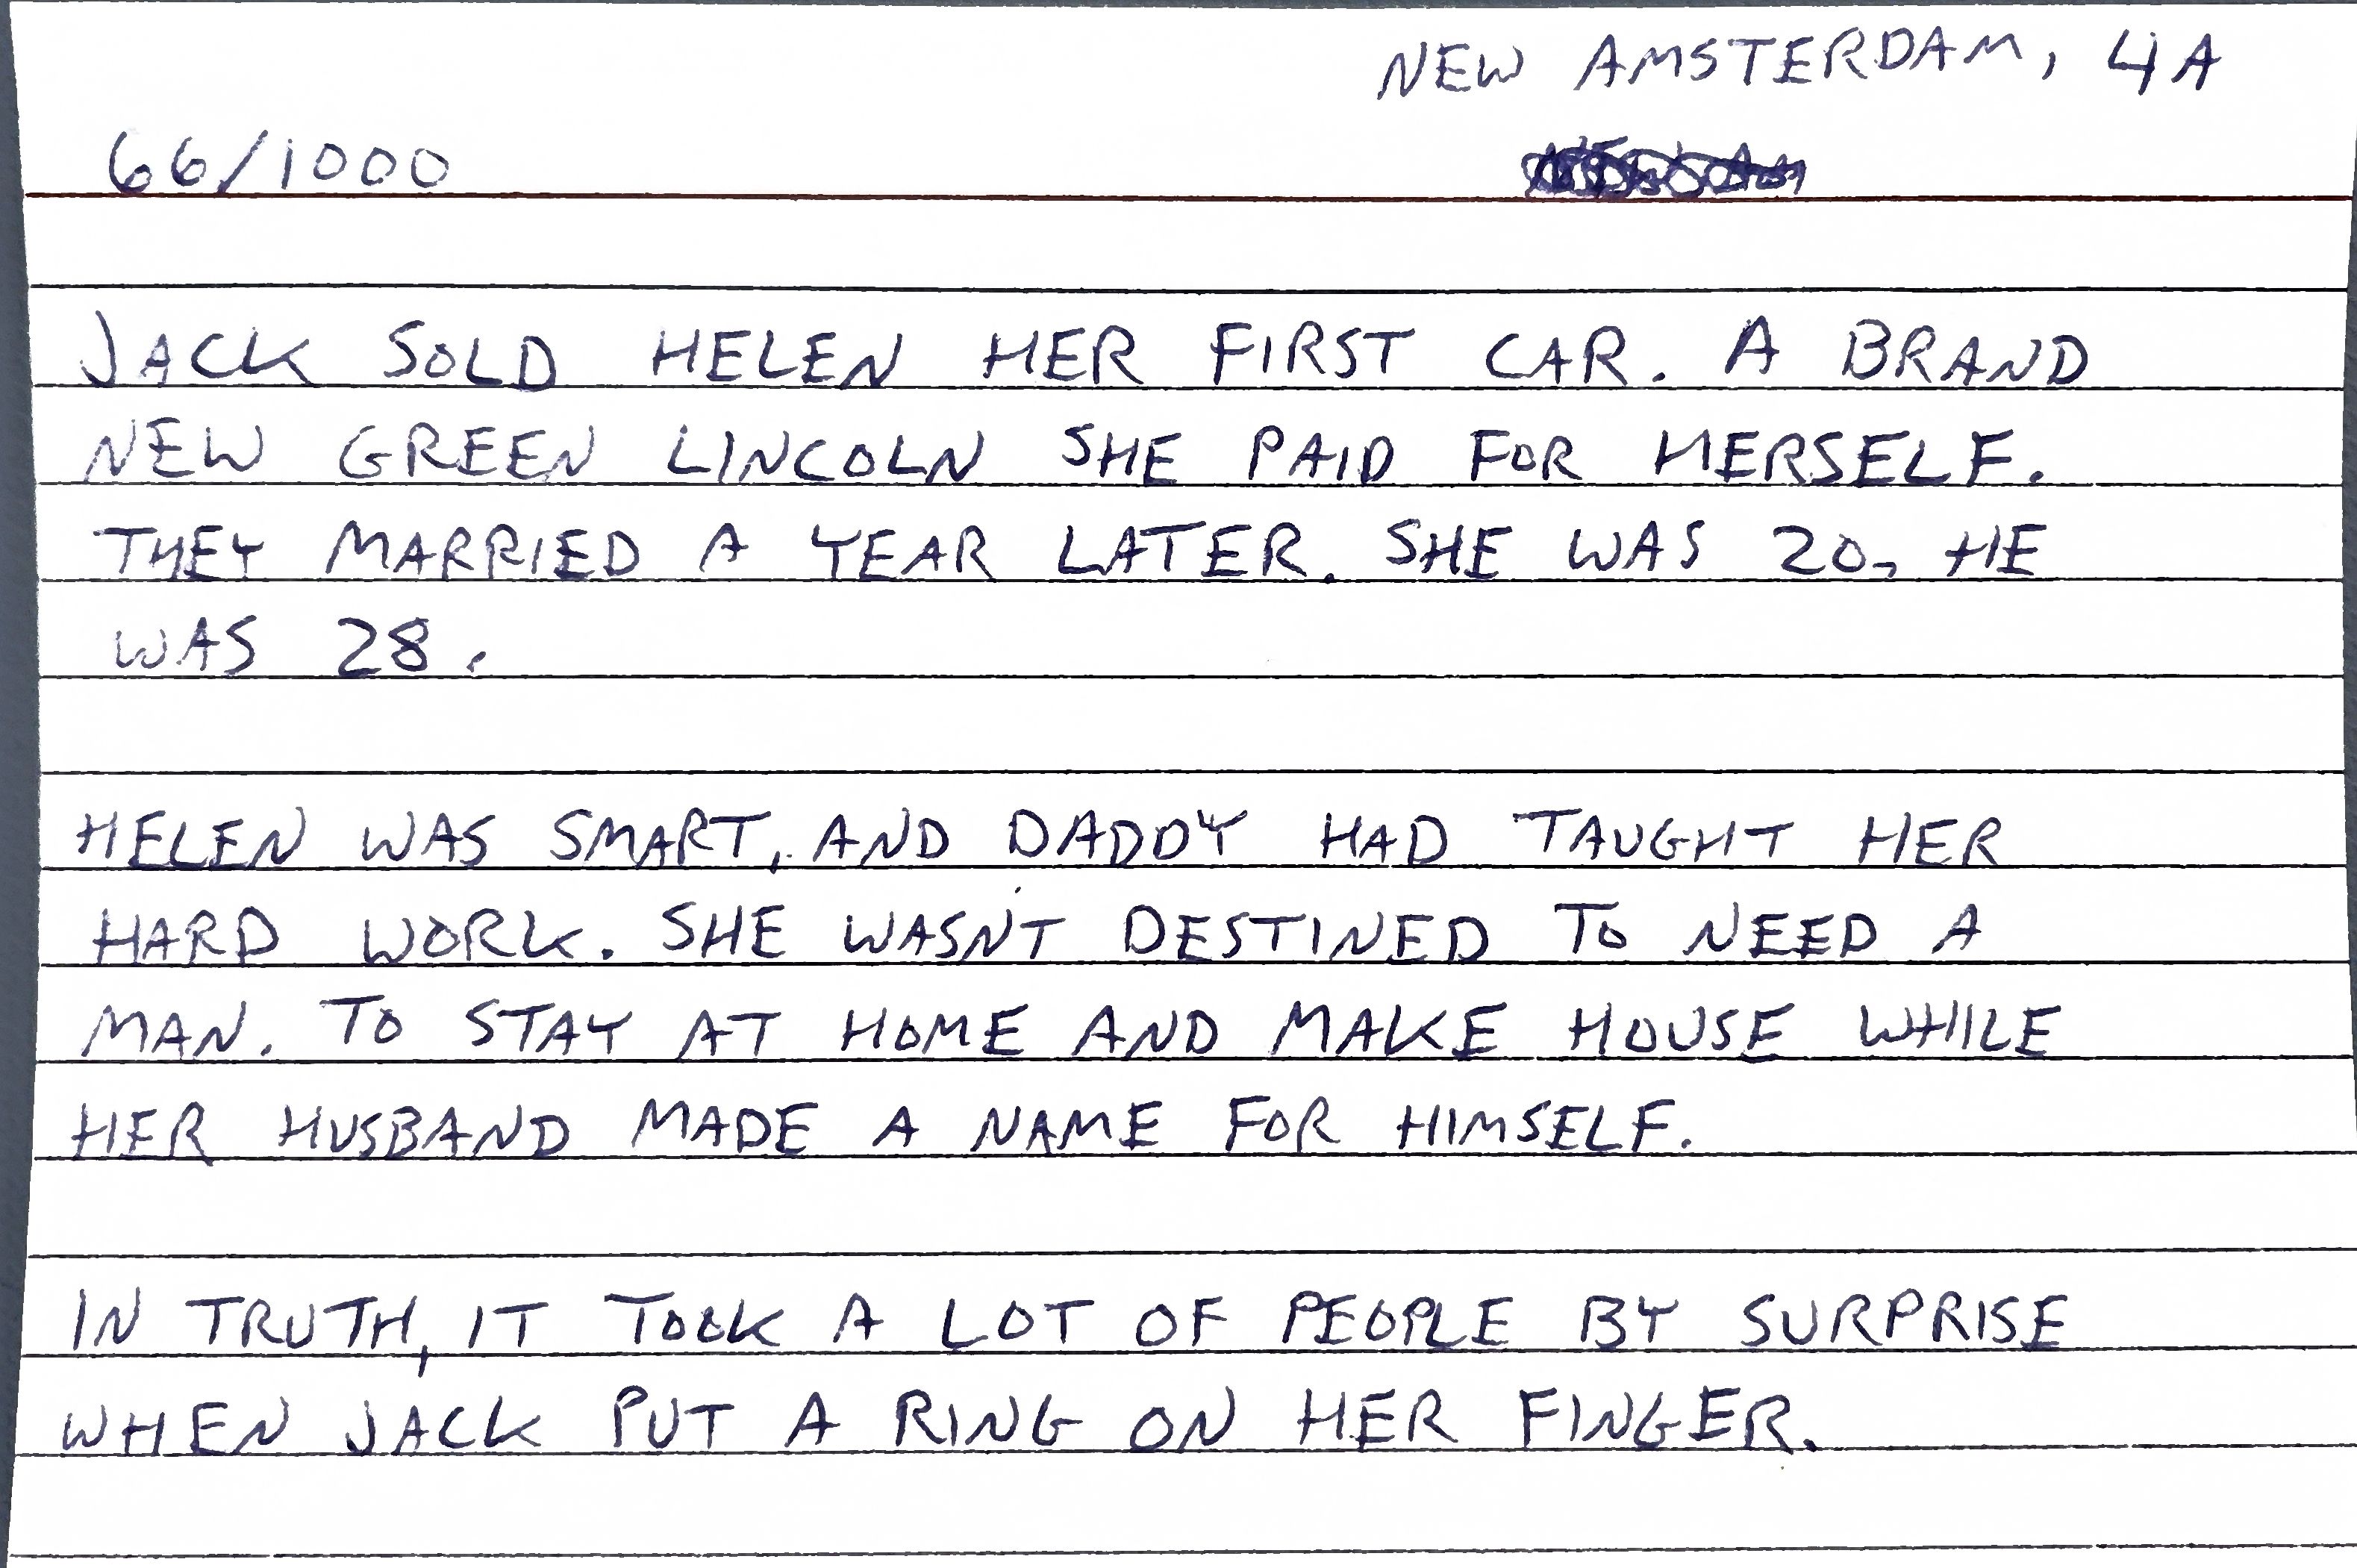 NEW AMSTERDAM, 4A
66/1000
JACK SOLD HELEN HER FIRST CAR. A BRAND
NEW GREEN LINCOLN SHE PAID FOR HERSELF.
THEY MARRIED A YEAR LATER. SHE WAS 20, HE
WAS 28.
HELEN WAS SMART, AND DADDY HAD TAUGHT HER
HARD WORK. SHE WASN'T DESTINED TO NEED A
MAN. TO STAY AT HOME AND MAKE HOUSE WHILE
HER HUSBAND MADE A NAME FOR HIMSELF.
IN TRUTH, IT TOOK A LOT OF PEOPLE BY SURPRISE
WHEN JACK PUT A RING ON HER FINGER.